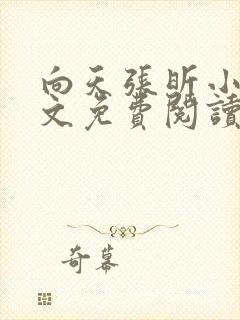 向天張昕小
文免費閱讀
奇幕